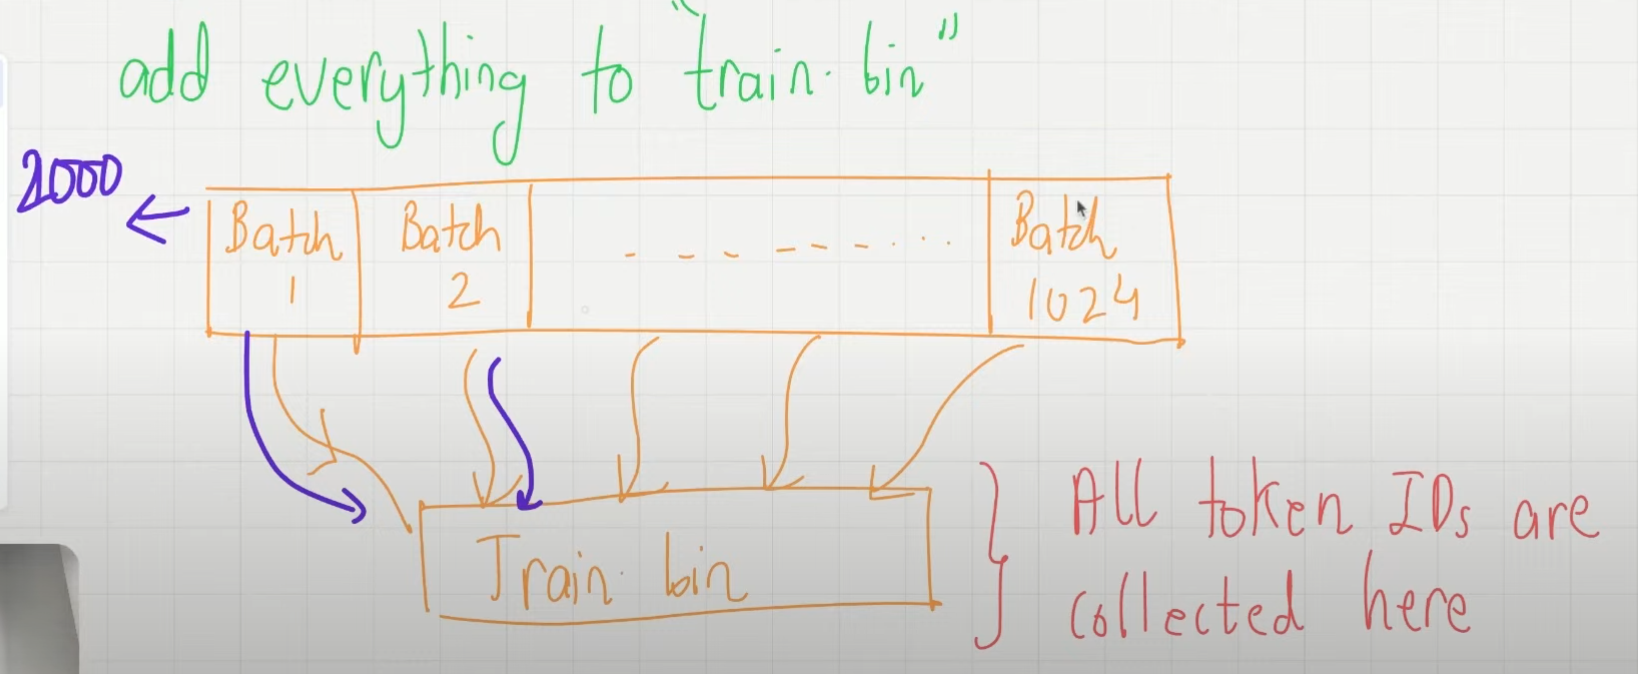 add everything to "train.bin"
2000
Batch 1
Batch 2
Batch 1024
Train.bin
All token IDs are
collected here